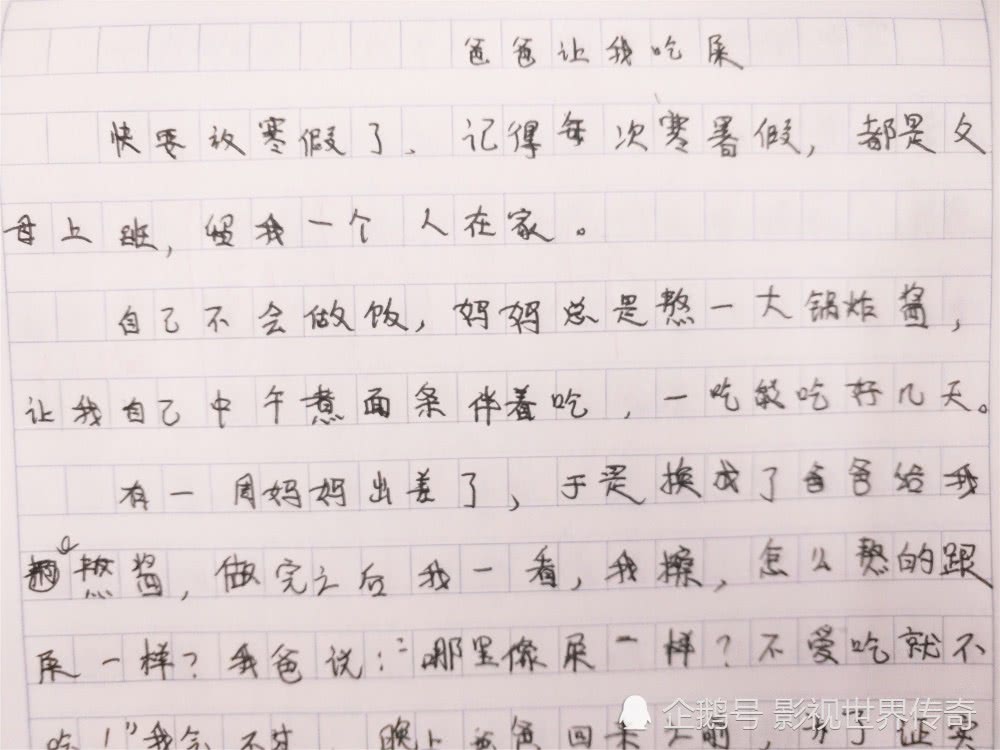 爸爸让我吃屎
快要放寒假了、记得每次寒暑假,都是父
母上班,留我一个人在家。
自己不会做饭,妈妈总是熬一大锅炸酱,
让我自己中午煮面条伴着吃,一吃就吃好几天。
有一周妈妈出差了,于是换成了爸爸给我
熬酱,做完之后我一看,我擦,怎么熬的跟
屎一样?我爸说:“哪里像屎一样?不爱吃就不
吃!”我气不过,晚上爸爸回来之前,为了证实
企鹅号 影视世界传奇